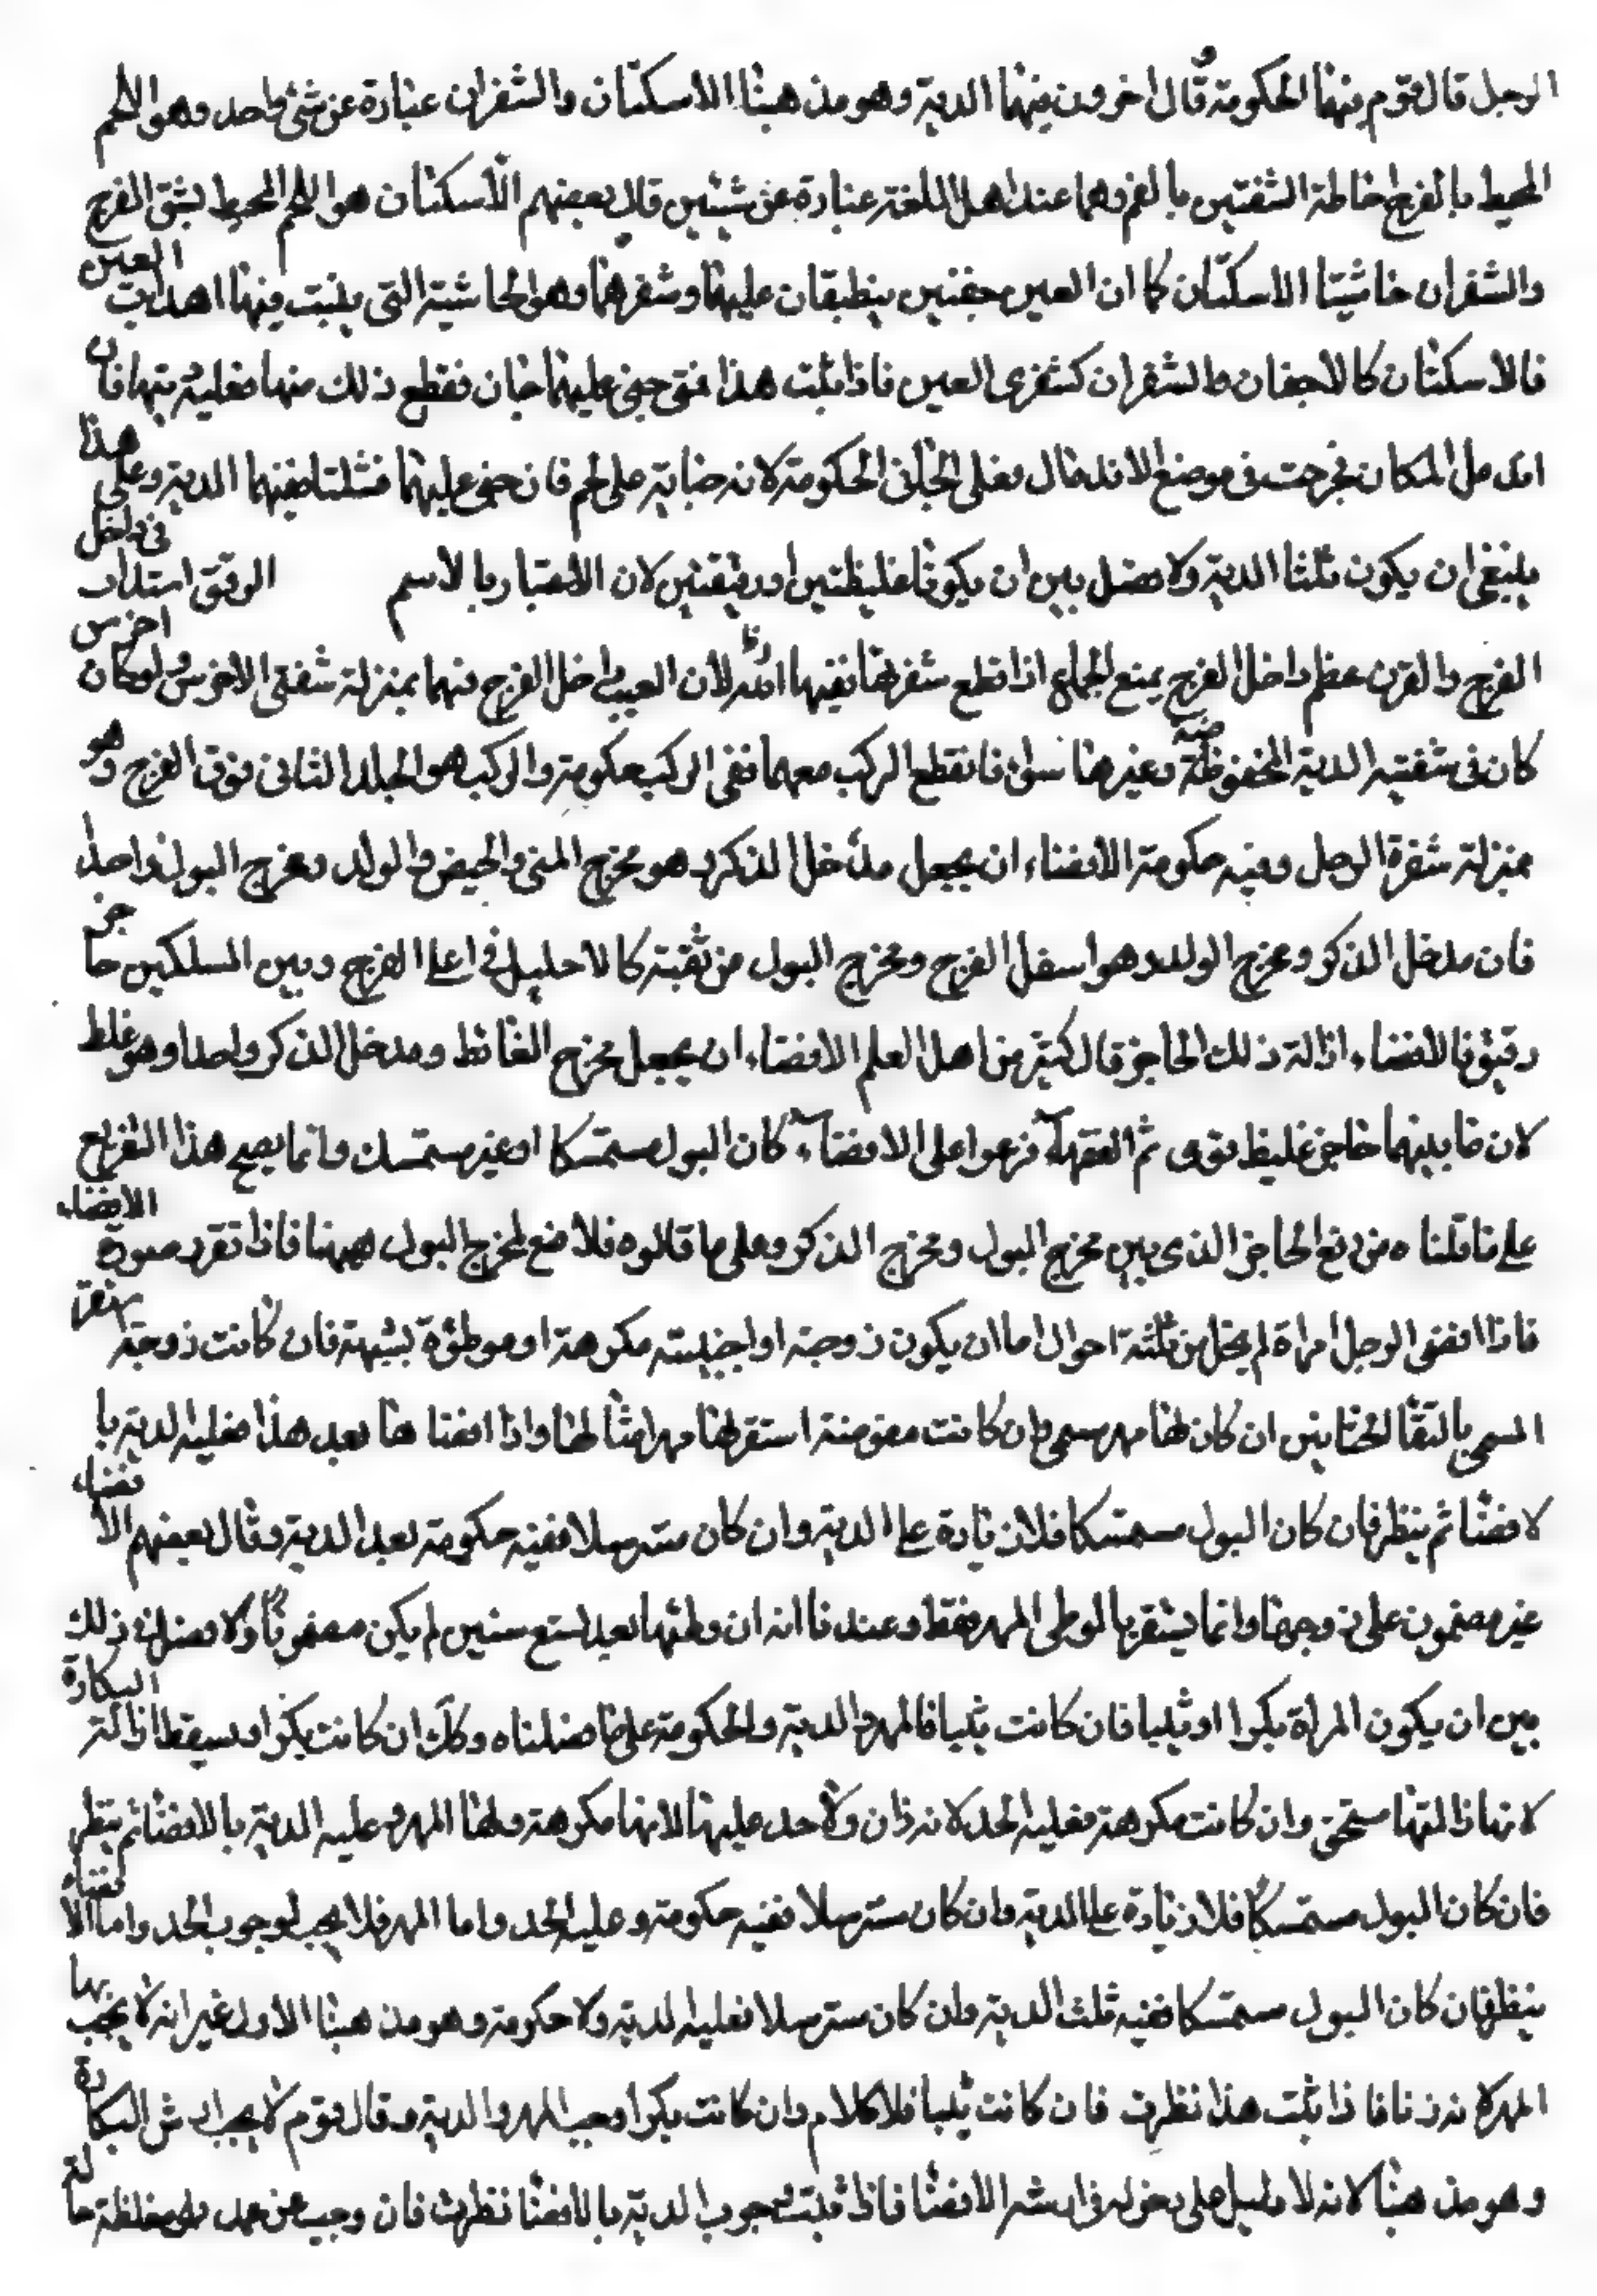 الرجل قال قوم فيهما الحكومة وقال اخرون فيهما الدية وهو مذهبنا الاسكتان والشفران عبارة عن شئ واحد وهو اللحم
المحيط بالفرج احاطة الشفتين بالفم وهما عند اهل اللغة عبارة عن شيئين قال بعضهم الاسكتان هو اللحم المحيط بشق الفرج
والشفران حاشيتا الاسكتان كما ان العين جفنين ينطبقان عليها وشفرهما وهو الحاشية التى ينبت فيها اهداب العين
فالاسكتان كالاجفان والشفران كشفرى العين فاذا ثبت هذا فمتى جنى عليهما جان فقطع ذلك منها فعليه ديتها فان
اندمل المكان فجرحت فى موضع الاندمال فعلى الجانى الحكومة لانه جناية على لحم فان جنى عليهما فشلتا ففيهما الدية وعلى هذا
ينبغى ان يكون ثلثا الدية ولا فصل بين ان يكونا غليظتين او دقيقتين لان الاعتبار بالاسم الرتق انسداد فى داخل
الفرج والقرن عظم داخل الفرج يمنع الجماع اذا قطع شفرهما ففيهما الدية لان العيب داخل الفرج فهما بمنزلة شفتى الاخرس ولو كان اخرس
كان فى شفتيه الدية المخفوضة وغيرها سواء فان قطع الركب معهما ففى الركب حكومة والركب هو الجلد الثانى فوق الفرج وهو
بمنزلة شفرة الرجل وفيه حكومة الافضاء ان يجعل مدخل الذكر وهو مخرج المنى والحيض والولد ومخرج البول واحدا
فان مدخل الذكر ومخرج الولد وهو اسفل الفرج ومخرج البول من ثقبة كالاحليل فى اعلا الفرج وبين المسلكين حاجز
رقيق فالافضاء ازالة ذلك الحاجز قال كثير من اهل العلم الافضاء ان يجعل مخرج الغائط ومدخل الذكر واحدا وهو غلط
لان ما بينهما حاجز غليظ قوى ثم الفقهاء فرعوا على الافضاء كان البول مستمسكا او غير مستمسك وانما يصح هذا التفريع
على ما قلناه من رفع الحاجز الذى بين مخرج البول ومخرج الذكر وعلى ما قالوه فلا صنع لمخرج البول ههنا فاذا تقرر صورة الافضاء
فاذا افضى الرجل امراة لم يخل من ثلثة احوال اما ان يكون زوجته او اجنبية مكرهة او موطؤة بشبهة فان كانت زوجته استقر
المسمى بالتقا الختانين ان كان لها مهر مسمى وان كانت مفوضة استقر لها مهر امثالها واذا افضاها بعد هذا فعليه الدية با
لافضا ثم ينظر فان كان البول مستمسكا فلا زيادة على الدية وان كان مسترسلا ففيه حكومة بعد الدية وقال بعضهم الافضاء
غير مضمون على زوجها وانما يستقر بالوطى المهر فقط وعندنا انه ان وطئها بعد تسع سنين لم يكن مضمونا ولا فصل فى ذلك
بين ان يكون المراة بكرا او ثيبا فان كانت ثيبا فالمهر والدية والحكومة على ما فصلناه وكك ان كانت بكرا ويسقط ازالة البكارة
لان ازالتها مستحق وان كانت مكرهة فعليه الحد لانه زان ولا حد عليها لانها مكرهة ولها المهر وعليه الدية بالافضا ثم ينظر
فان كان البول مستمسكا فلا زيادة على الدية وان كان مسترسلا ففيه حكومة وعليه الحد واما المهر فلا يجب لوجوب الحد واما الافضاء
ينظر فان كان البول مستمسكا ففيه ثلث الدية وان كان مسترسلا فعليه الدية ولا حكومة وهو مذهبنا الاول غير انه لا يجب بها
المهر لانه زنا فاذا ثبت هذا نظرت فان كانت ثيبا فلا كلام وان كانت بكرا وجب المهر والدية وقال قوم لا يجب ارش البكارة
وهو مذهبنا لانه لا دليل على دخوله فى ارش الافضا فاذا ثبت وجوب الدية بالافضا نظرت فان وجب عن عمد فهى مغلظة حالة